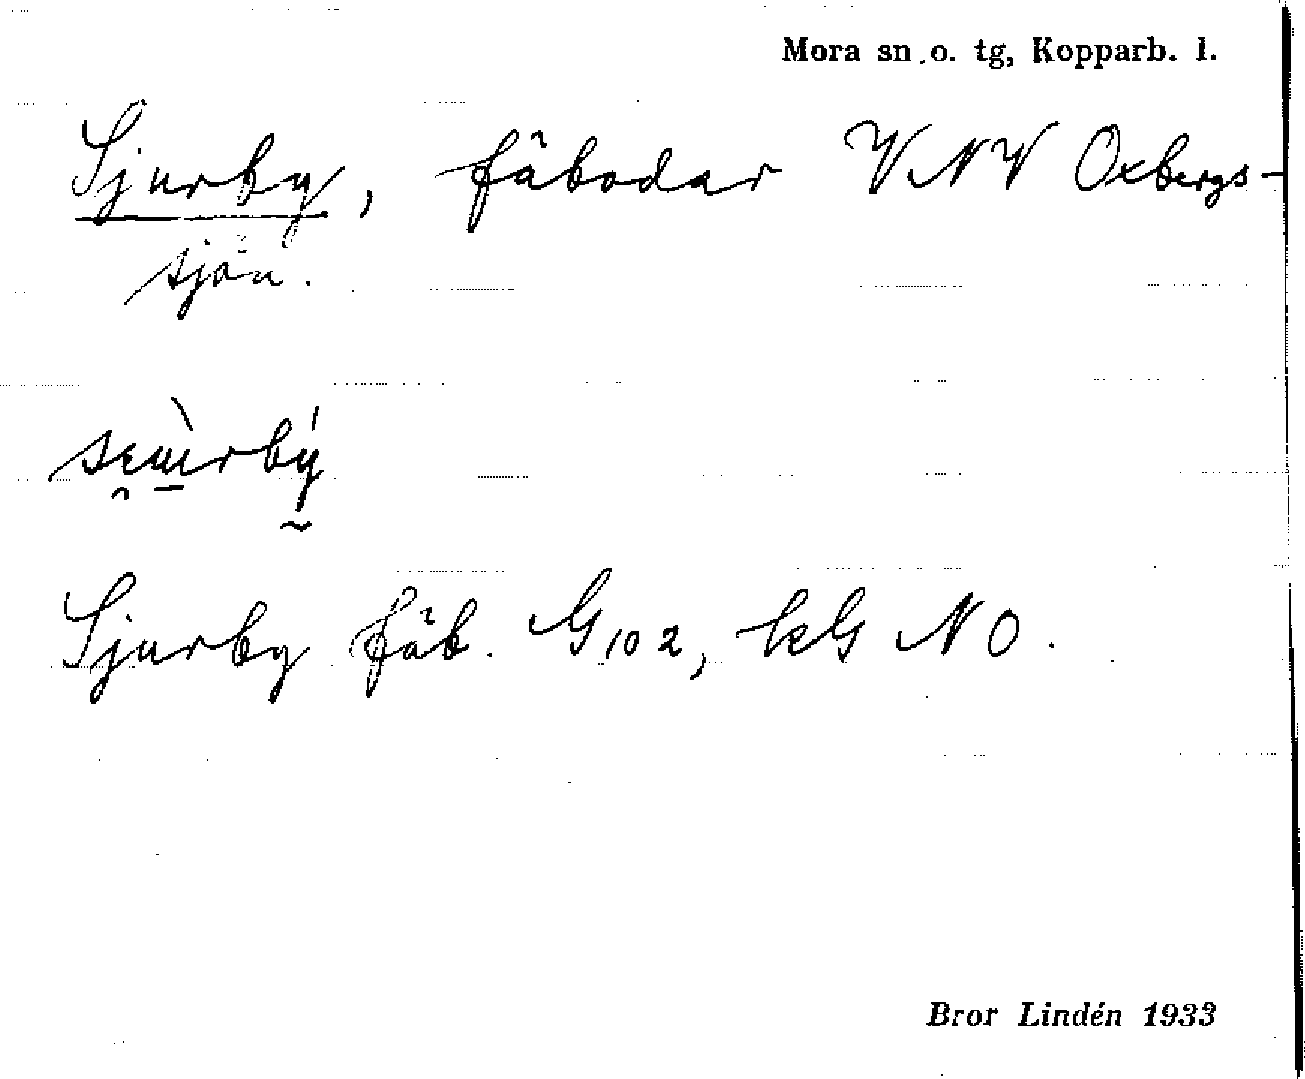 Mora sn o. tg, Kopparb. l.
Sjurby, fäbodar VNV Oxbergs-
sjön.
Sjurby fäb. G102, kG NO.
Bror Lindén 1933